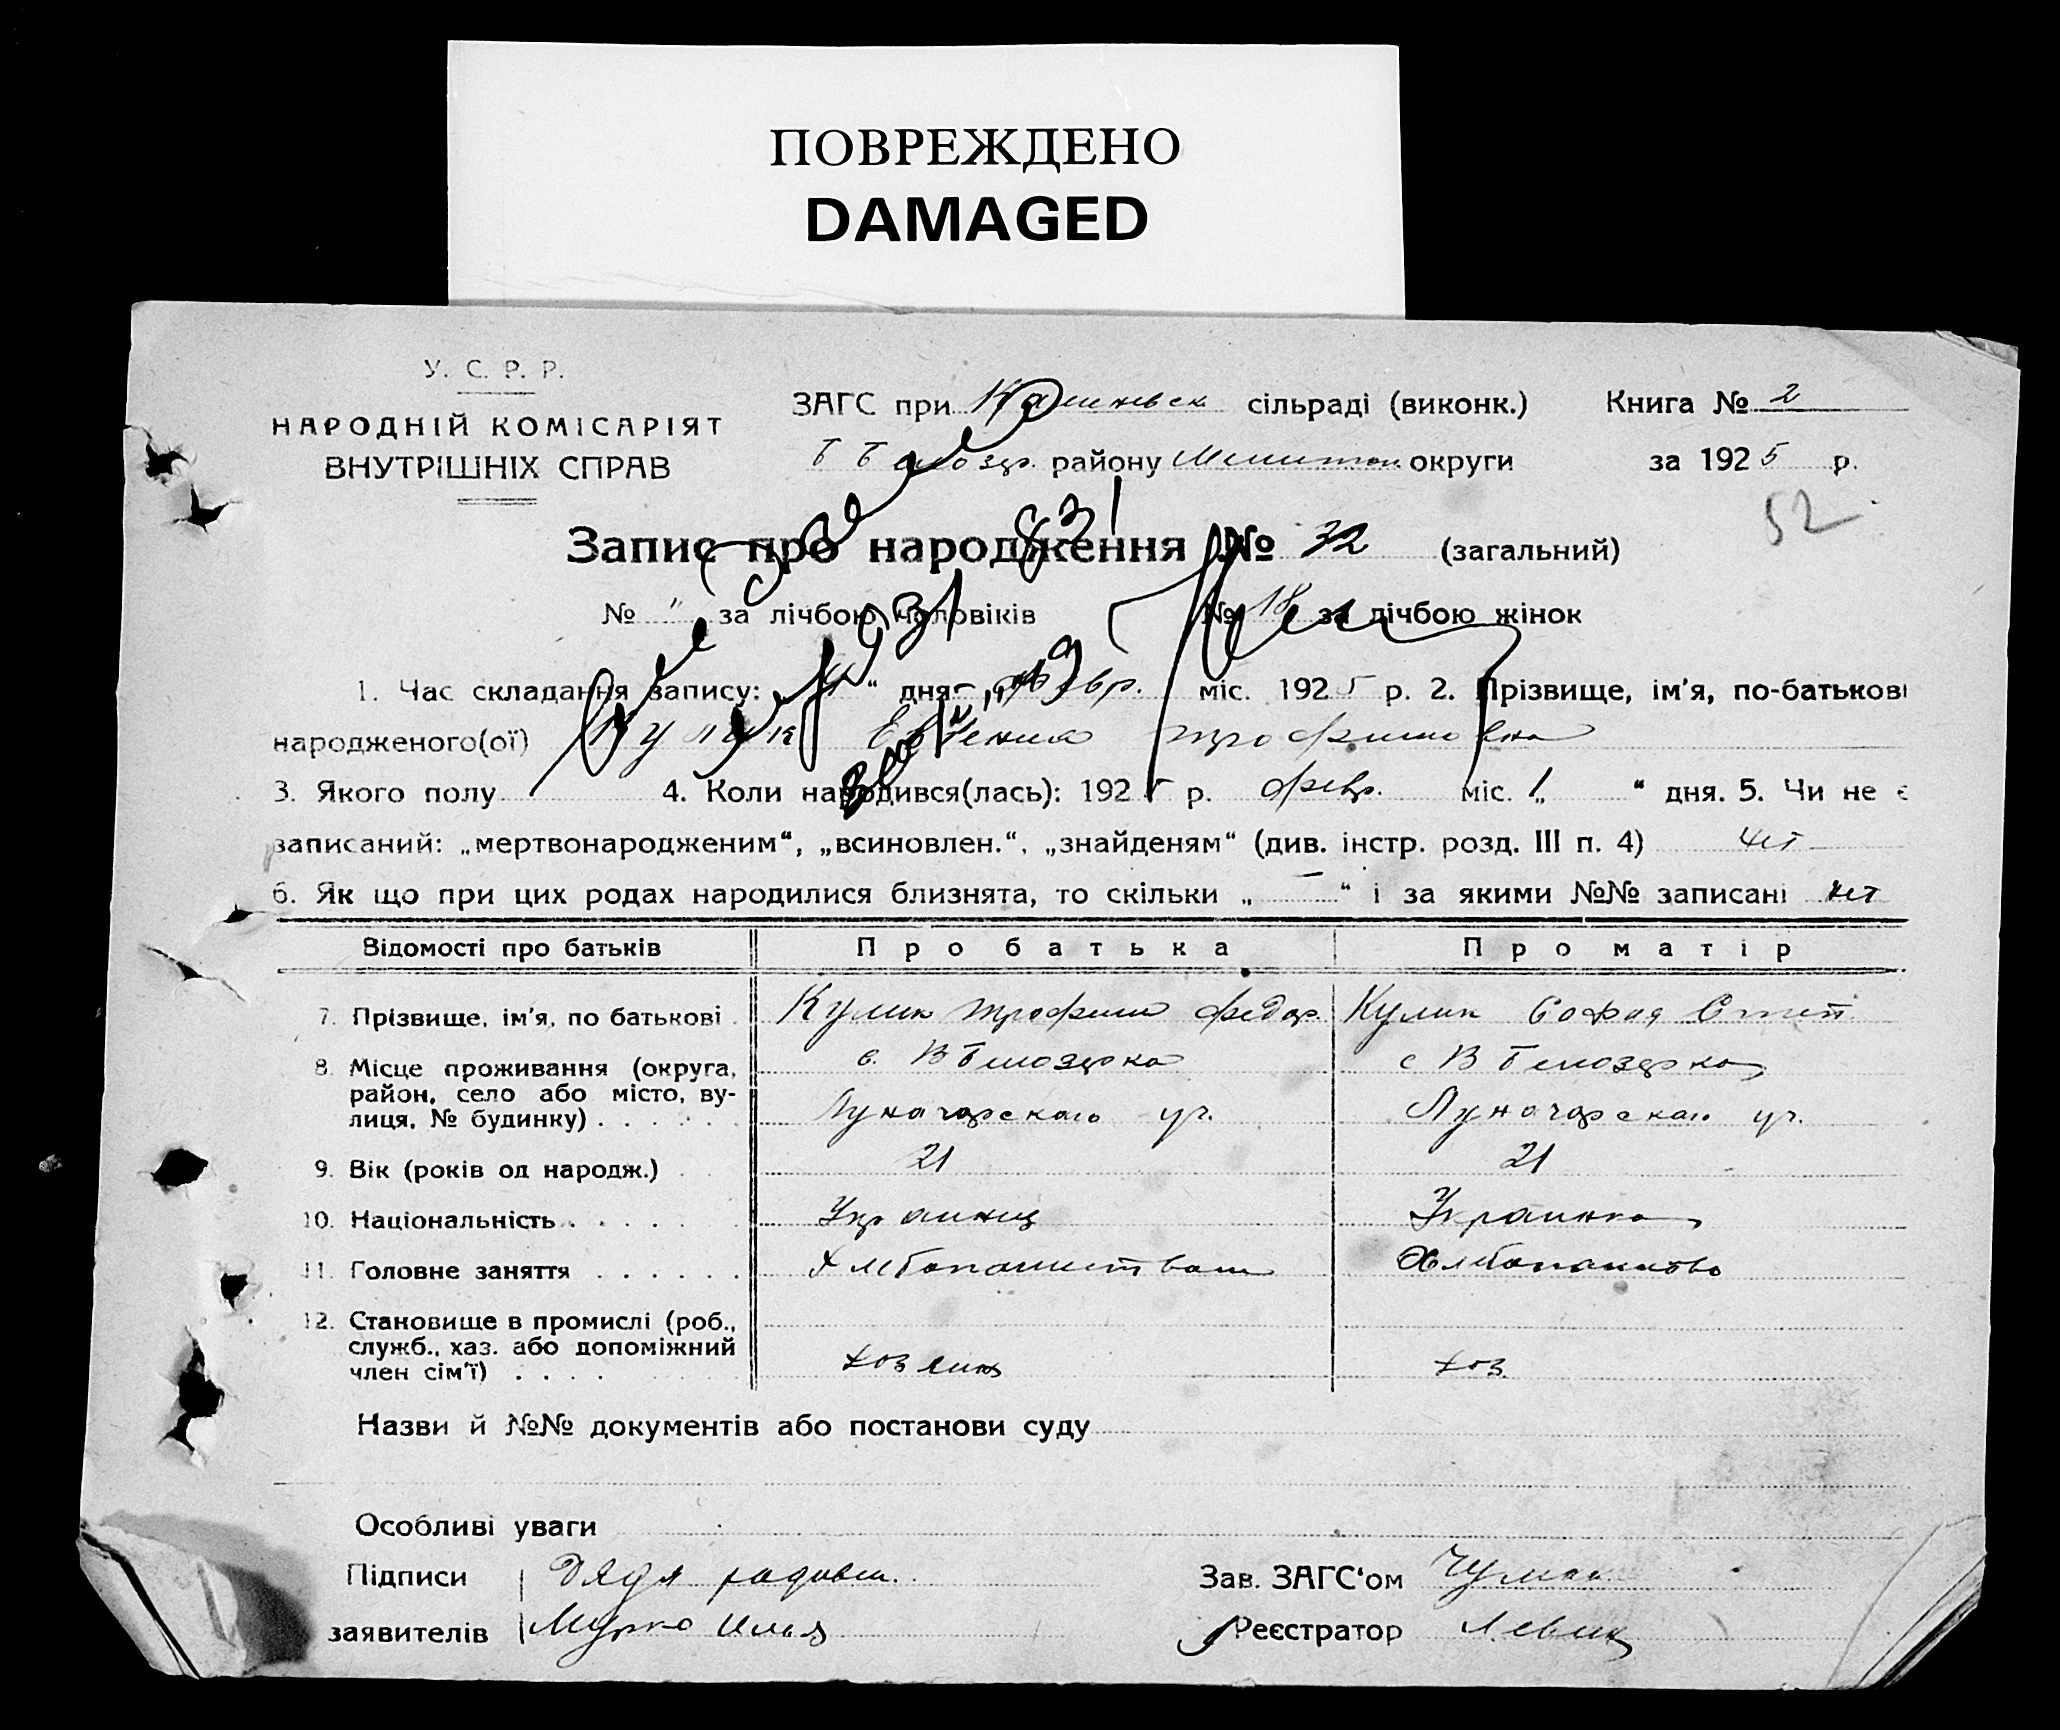 ПОВРЕЖДЕНО
DAMAGED
У. С. Р. Р.
НАРОДНІЙ КОМІСАРІЯТ
ВНУТРІШНІХ СПРАВ
ЗАГС при сільраді (виконк.) Книга № 2
району округи за 1925 р.
52
Запис про народження № 32 (загальний)
831
№ " за лічбою чоловіків № 18 за лічбою жінок
1. Час складання запису: " дня февр. міс. 1925 р. 2. Прізвище, ім'я, по-батькові
народженого(ої) Кулик Евгения Трофимовна
3. Якого полу 4. Коли народився(лась): 1925 р. февр. міс. „1 " дня. 5. Чи не є
записаний: „мертвонародженим“, „всиновлен.“, „знайденям“ (див. інстр. розд. III п. 4) нет
6. Як що при цих родах народилися близнята, то скільки „ — “ і за якими №№ записані нет
Відомості про батьків Про батька Про матір
7. Прізвище, ім'я, по батькові Кулик Трофим Федор. Кулик София Степ.
8. Місце проживання (округа, с. В Белозерка с В Белозерка
район, село або місто, ву-
лиця, № будинку) . . . . . . Луначарского ул. Луначарского ул.
9. Вік (років од народж.) 21 21
10. Національність . . . . . Украинец Украинка
11. Головне заняття . . . . . . Хлебопашеством Хлебопашество
12. Становище в промислі (роб.,
служб., хаз. або допоміжний
член сім'ї) . . . . хозяин хоз.
Назви й №№ документів або постанови суду
Особливі уваги
Підписи Дядя Зав. ЗАГС'ом
заявителів Мурко Илья Реєстратор